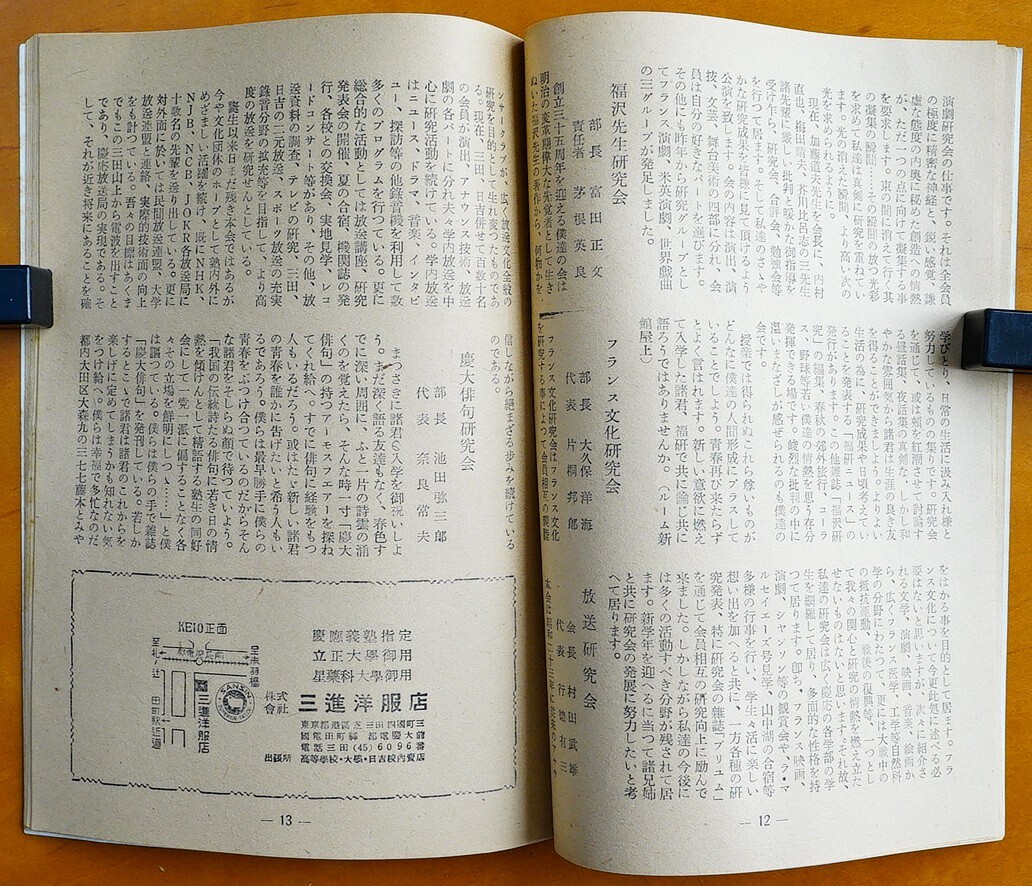 演劇研究会の仕事です。それは全会員
の極度に精密な神経と、鋭い感覚、謙
虚な態度の内奥に秘めた創造への情熱
が、ただ一つの点に向けて凝集する事
を要求します。束の間に消えて行く其
の凝集の瞬間……その瞬間の放つ光彩
を求めて私達は真剣に研究を重ねてい
ます。光の消えた瞬間、より高い次の
光を求められるままに。
現在、加藤道夫先生を会長に、内村
直也、梅田晴夫、芥川比呂志の三先生
諸先輩の厳しい批判と暖かな御指導を
受け乍ら、研究会、合評会、勉強会等
を行つて居ます。そして私達のささや
かな研究成果を皆様に見て頂けるよう
公演を致します。会の内容は演出、演
技、文芸、舞台美術の四部に分れ、会
員は自分の好きなパートを選びます。
その他にも昨年から研究グループとし
てフランス演劇、米英演劇、世界戯曲
の三グループが発足しました。
福沢先生研究会
部長 富田正文
責任者 茅根英良
創立三十五周年を迎える僕達の会は
明治の変革期偉大な先覚者として生き
ぬいた福沢先生の著作から、何物かを
学びとり、日常の生活に汲み入れ様と
努力しているものの集りです。研究会
を通じて、或は頬を紅潮させて討論す
る雙話集、夜話集の真剣な、しかし和
やかな雰囲気から諸君は生涯の良き友
を得ることができましよう。より高い
生活の為に、研究成果や日頃考えてい
ることを発表する「福研ニュース」の
発行があります。この他雑誌「福沢研
究」の編集、春秋の郊外旅行、コーラ
ス、野球等若い僕達の情熱を思う存分
発揮できる場です。峻烈な批判の中に
還いまなざしが感ぜられるのも僕達の
会です。
授業では得られぬこれら尊いものが
どんなに僕達の人間形成にプラスして
いることでしよう。青春再び来らず
とよく言はれます。新しい意欲に燃え
て入学した諸君、福研で共に論じ共に
語ろうではありませんか。(ルーム新
館屋上)
フランス文化研究会
部長 大久保洋海
代表 片桐邦郎
フランス文化研究会はフランス文化
を研究する事によつて会員相互の親睦
をはかる事を目的として居ます。フラ
ンス文化について今更此処に述べる必
要はないと思いますが、次々に紹介さ
れる文学、演劇、映画、音楽、絵画か
ら、広くフランス医学、工学等自然科
学の分野にわたつて、更に大戦中のあ
の抵抗運動、戦後の復興等、一つとし
て我々の関心と研究の情熱をそえ立た
せないものはないと思います。それ故、
私達の研究会は広く慶応の各学部の学
生を網羅して居り、多面的な性格を持
つて居ります。即ち、フランス映画、
演劇、シヤンソン等の観賞会やラ・マ
ルセイエーズ号見学、山中湖の合宿等
多様の行事を行い、学生々活に楽しい
想い出を加へると共に、一方各種の研
究発表、特に研究会の雑誌「プリユム」
を通じて会員相互の研究向上に励んで
来ました。しかしながら私達の今後に
は多くの活動すべき分野が残されて居
ます。新学年を迎へるに当つて諸兄姉
と共に研究会の発展に努力したいと考
へて居ります。
放送研究会
会長 村田武雄
代表 行徳有三
本会は昭和二十三年に従来のアナウ
— 12 —
ンサークラブが、広く放送文化全般の
研究を目的として生れ変つたものであ
る。現在、三田、日吉併せて百数十名
の会員が演出、アナウンス技術、放送
劇の各パートに分れ夫々学内放送を中
心に研究活動を続けている。学内放送
はニュース、ドラマ、音楽、インタビ
ュー、探訪等の他録音機を利用して数
多くのプログラムを行つている。更に
総合的な活動としては放送講座、研究
発表会の開催、夏の合宿、機関誌の発
行、各校との交換会、実地見学、レコ
ードコンサート等があり、その他、放
送資料の調査、テレビの研究、三田、
日吉の二元放送、スポーツ放送の充実
録音分野の拡充等を目指して、より高
度の放送を研究せんとしている。
襲生以来日まだ残き本会ではあるが
今や文化団体のホープとして塾内外に
めざましい活躍を続け、既にＮＨＫ、
ＮＪＢ、ＮＣＢ、ＪＯＫＲ各放送局に
十数名の先輩を送り出している。更に
対外面に於いては民間放送連盟、大学
放送連盟と連絡、実際的技術面の向上
をも計つている。吾々の目標はあくま
でもこの三田山上から電波を出すこと
であり、慶応放送局の実現である。そ
して、それが近き将来にあることを確
信しながら絶まざる歩みを続けている
のである。
慶大俳句研究会
部長 池田弥三郎
代表 奈良常夫
まつさきに諸君の入学を御祝いしよ
う。まだ深く語る友達もなく、春色す
でに深い周囲に、ふと一片の詩雲の涌
くのを覚えたら、そんな時一寸「慶大
俳句」の持つアーモスフエアーを探ね
てくれ給へ。すでに俳句に経験をもつ
人もいるだろう。或はたゞ新しい諸君
の青春を誰かに告げたいと希う人もい
るであろう。僕らは最早勝手に僕らの
青春をぶつけ合つているのだからそん
な諸君をそしらぬ顔で待つていよう。
「我国の伝統詩たる俳句に若き日の情
熱を傾けんとして精語する塾生の同好
会にして一党一派に偏することなく各
々その立場を鮮明にしつゝ……」と僕
は謳つている。僕らは僕らの手で雑誌
「慶大俳句」を発刊している。若しか
するとそこで諸君は諸君のこれからを
楽しげに定めてしまうかも知れない気
をつけ給へ。僕らは幸福で多忙なのだ
都内大田区大森九の三七七藤木とみや
慶應義塾指定
立正大學御用
星藥科大學御用
株式會社 三進洋服店
東京都港区芝三田四國町三
國電田町驛 都電慶大前
電話三田(45)6096番
出張所 高等學校・大學・日吉校内賣店
KEIO正面
至赤羽橋
至札ノ辻
三進洋服店
田町駅近道
— 13 —